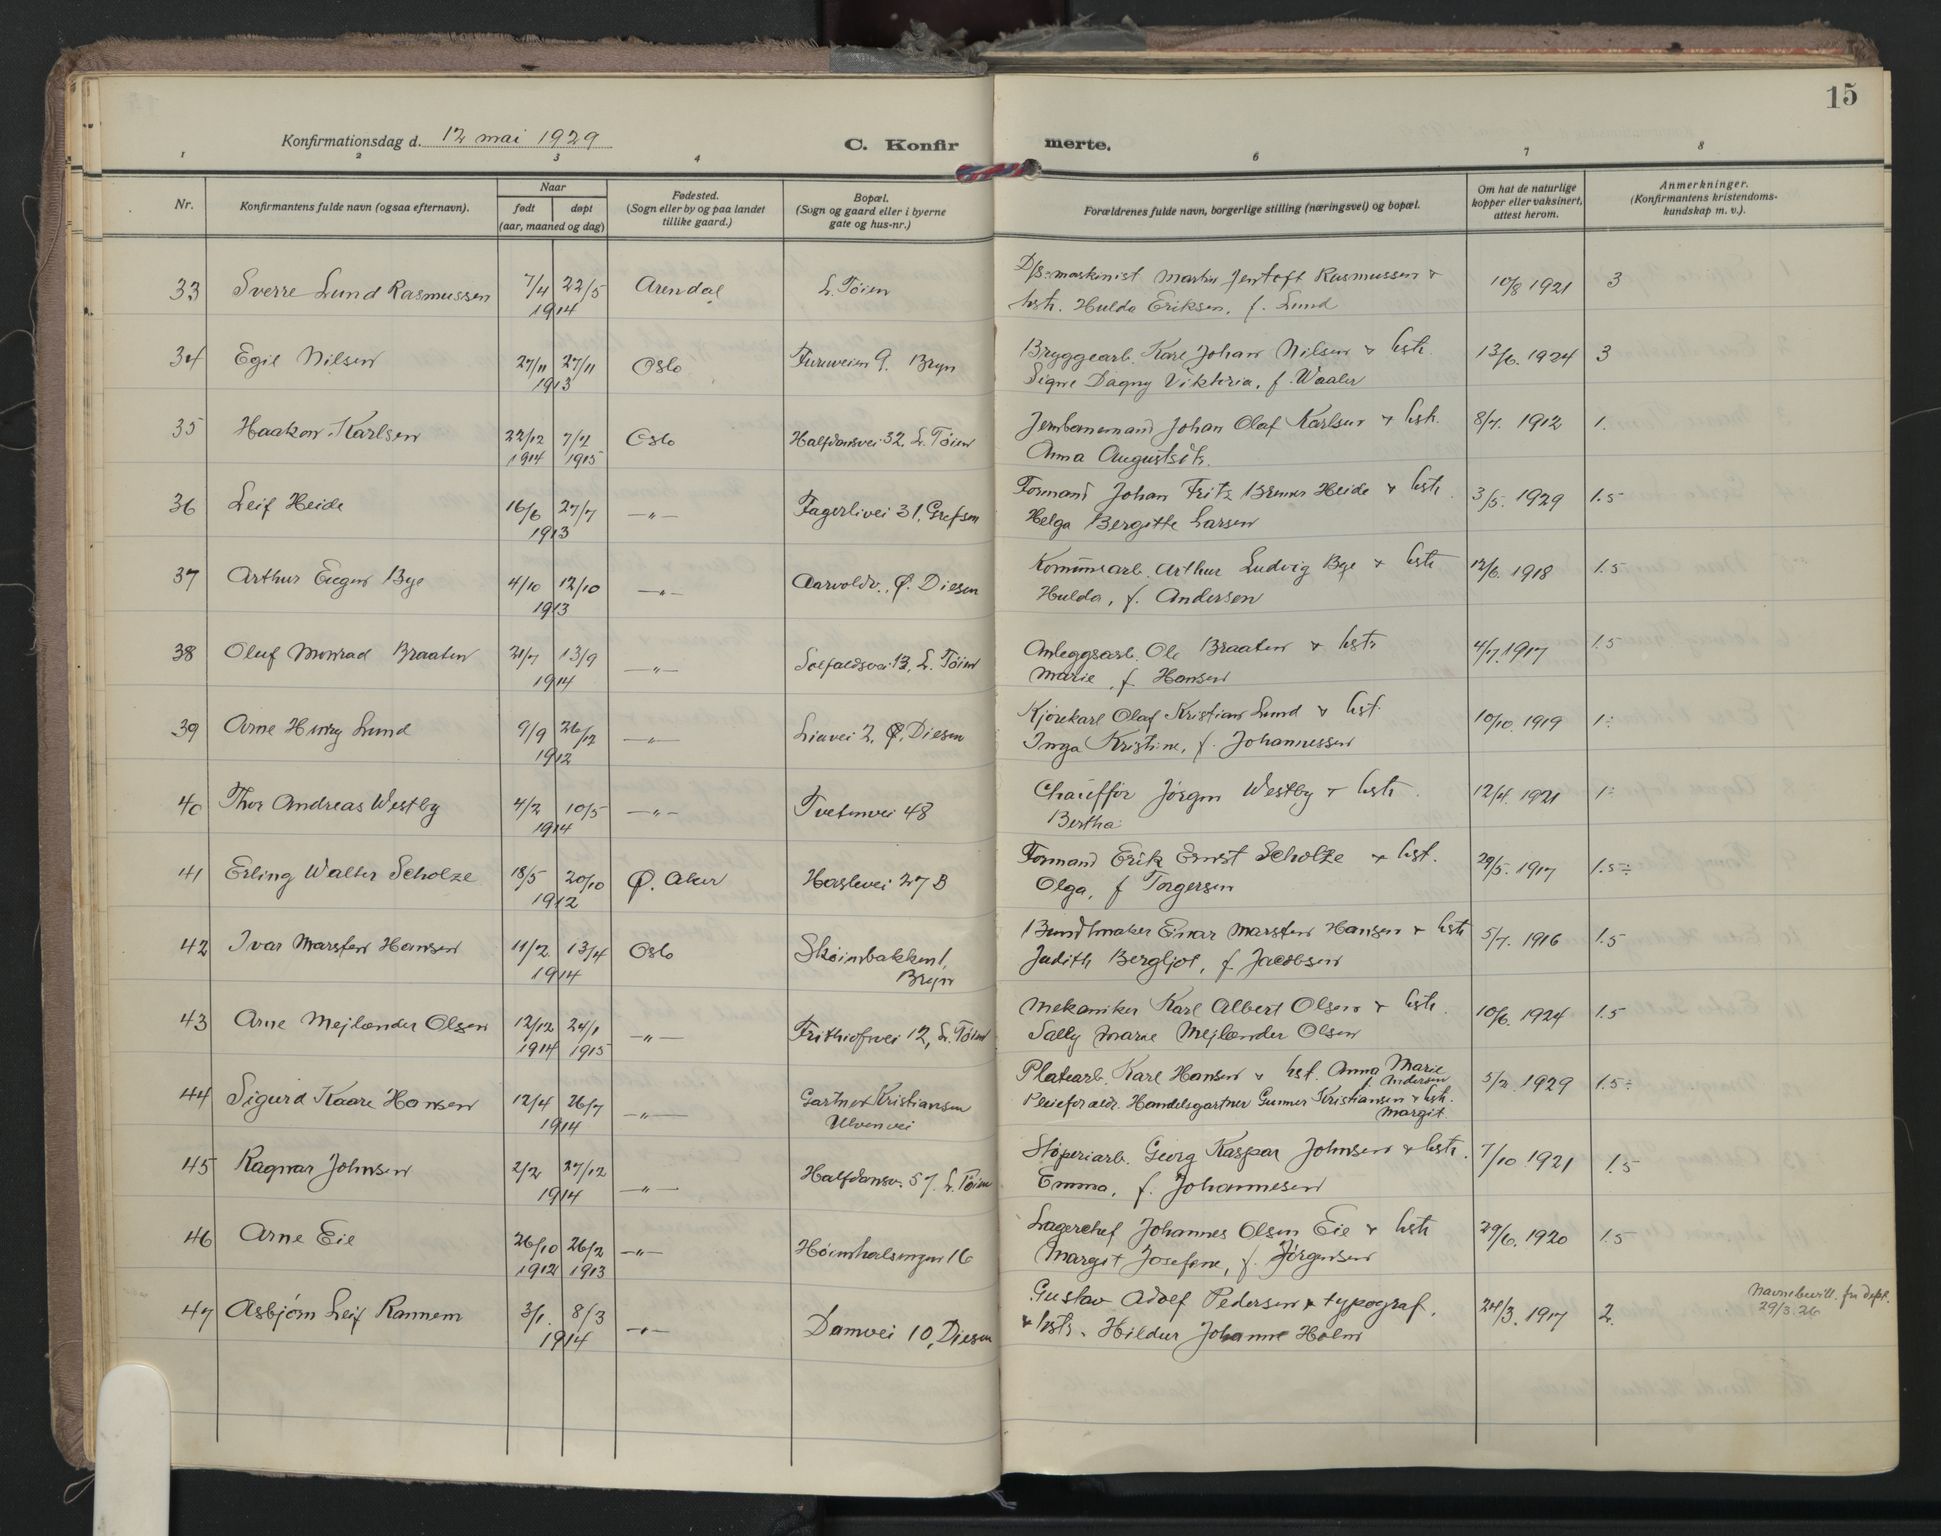 15
Konfirmationsdag d. 12 mai 1929
C. Konfirmerte.
1 2 3 4 6 7 8
Nr.
Konfirmantens fulde navn (ogsaa efternavn).
Naar
født døpt
(aar, maaned og dag)
Fødested.
(Sogn eller by og paa landet
tillike gaard.)
Bopæl.
(Sogn og gaard eller i byerne
gate og hus-nr.)
Forældrenes fulde navn, borgerlige stilling (næringsvei) og bopæl.
Om hat de naturlige
kopper eller vaksinert,
attest herom.
Anmerkninger.
(Konfirmantens kristendoms-
kundskap m. v.).
33 Sverre Lund Rasmussen 7/4 22/5 Arendal L. Tøien D/s-maskinist Martin Jentoft Rasmussen & 10/8 1921 3
1914 hstr. Hulda Eriksen, f. Lund
34 Egil Nilsen 27/11 27/11 Oslo Furuveien 9. Bryn Bryggearb. Karl Johan Nilsen & hstr. 13/6. 1924 3
1913 Signe Dagny Viktoria, f. Waaler
35 Haakon Karlsen 22/12 7/2 Oslo Halfdansvei 32, L. Tøien Jernbanemand Johan Olaf Karlsen & hstr. 8/7. 1912 1.
1914 1915 Anna Augustsdtr.
36 Leif Heide 16/6 27/7 —"— Fagerlivei 31, Grefsen Formand Johan Fritz Heide & hstr. 3/5. 1929 1.5
1913 Helga Bergitte Larsen
37 Arthur Eugen Bye 4/10 12/10 —"— Aarvoldv., Ø. Diesen Komunearb. Arthur Ludvig Bye & hstr 12/6. 1918 1.5
1913 Hulda, f. Andersen
38 Oluf Monrad Braaten 21/7 13/9 —"— Solfaldsvei 13, L. Tøien Anleggsarb. Ole Braaten & hstr 4/7. 1917 1.5
1914 Marie, f. Hansen
39 Arne Henry Lund 9/9 26/12 —"— Liavei 2, Ø. Diesen Kjørekarl Olaf Kristian Lund & hst. 10/10. 1919 1÷
1912 Inga Kristine, f. Johannessen
40 Thor Andreas Westby 4/2 10/5 —"— Tvetenvei 48 Chauffør Jørgen Westby & hstr. 12/4. 1921 1÷
1914 Bertha
41 Erling Walter Scholze 18/5 20/10 Ø. Aker Haslevei 27 B Formand Erik Ernst Scholze & hst. 29/5. 1917 1.5÷
1912 Olga, f Torgersen
42 Ivar Marsten Hansen 11/2 13/4 Oslo Skøienbakken 1, Bundtmaker Einar Marsten Hansen & hstr 5/7. 1916 1.5
1914 Bryn Judith Bergljot, f. Jacobsen
43 Arne Mejlænder Olsen 12/12 24/1 —"— Frithiofsvei 12, L. Tøien Mekaniker Karl Albert Olsen & hstr. 10/6. 1924 1.5
1914 1915 Sally Marie Mejlænder Olsen
44 Sigurd Kaare Hansen 12/4 26/7 —"— Gartner Kristiansen Platearb. Karl Hansen & hst. Anna Marie 5/2. 1929 1.5÷
f. Andersen
1914 Ulvenvei Pleieforældr. Handelsgartner Gunnar Kristiansen & hstr.
Margit
45 Ragnar Johnsen 2/2 27/12 —"— Halfdansv. 57. L. Tøien Støperiarb. Georg Kaspar Johnsen & hstr. 7/10. 1921 1.5
1914 Emma, f. Johannesen
46 Arne Eie 26/10 26/2 —"— Høienhalsingen 16 Lagerchef Johannes Olsen Eie & hstr 29/6. 1920 1.5
1912 1913 Margit Josefine, f. Jørgensen
47 Asbjørn Leif Rannem 3/1. 8/3 —"— Damvei 10, Diesen Gustav Adolf Pedersen & typograf, 24/3. 1917 2. Navnebevill. fra dept.
29/3.26
1914 & hstr. Hildur Johanne Holm